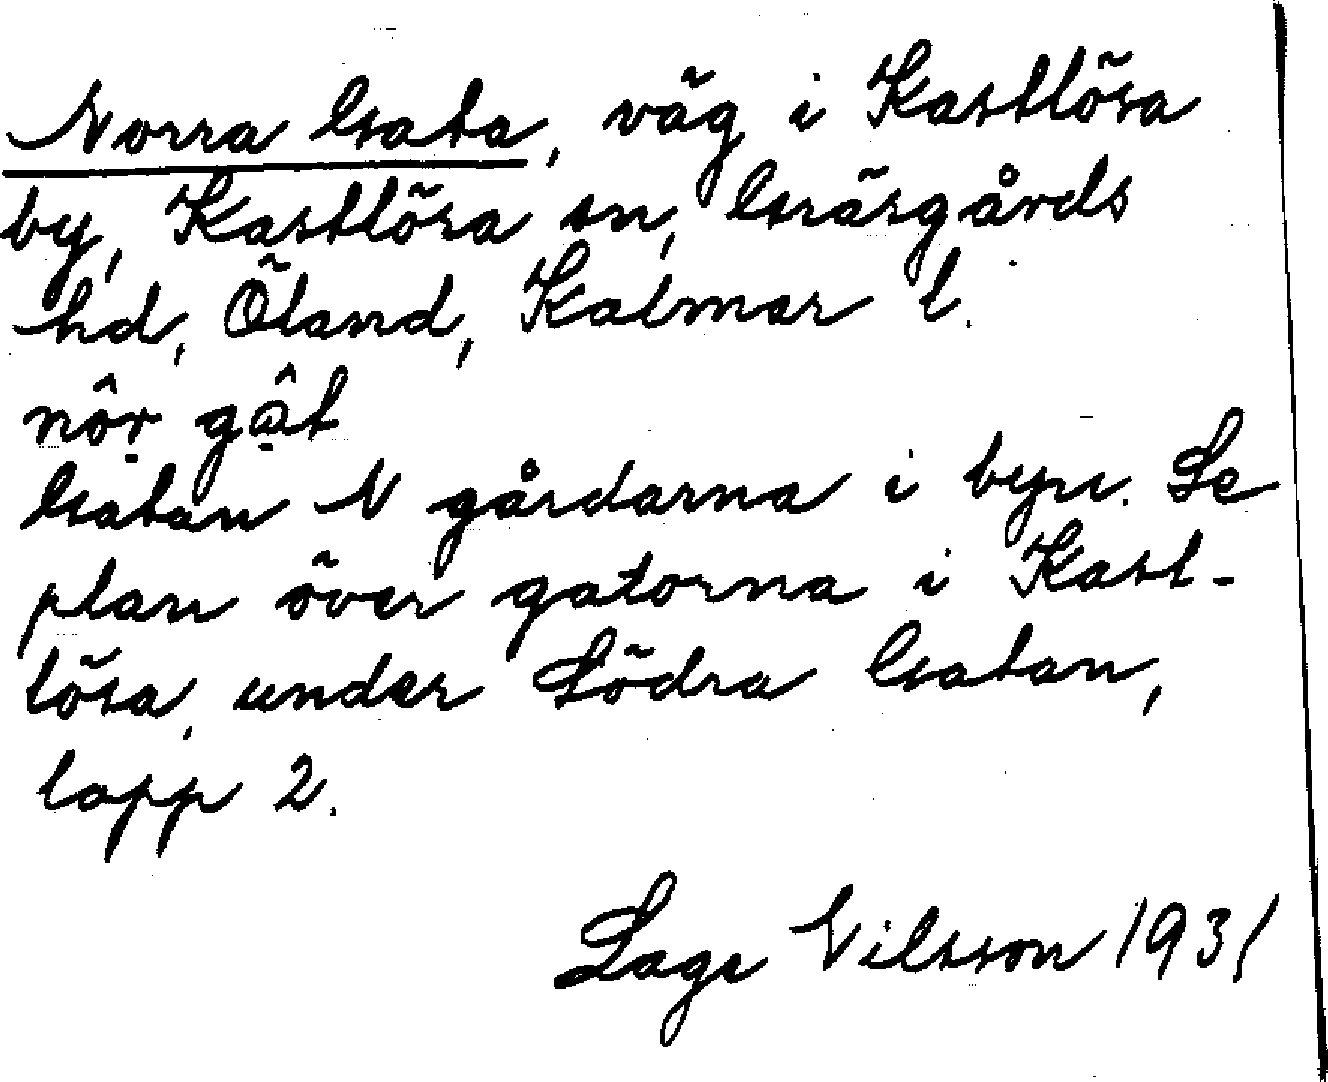 Norra Gata, väg i Kastlösa
by, Kastlösa sn, Gräsgårds
hd, Öland, Kalmar l.
nôṛ gật
Gatan N gårdarna i byn. Se
plan över gatorna i Kast-
lösa, under Södra Gatan,
lapp 2.
Lage Nilsson 1931